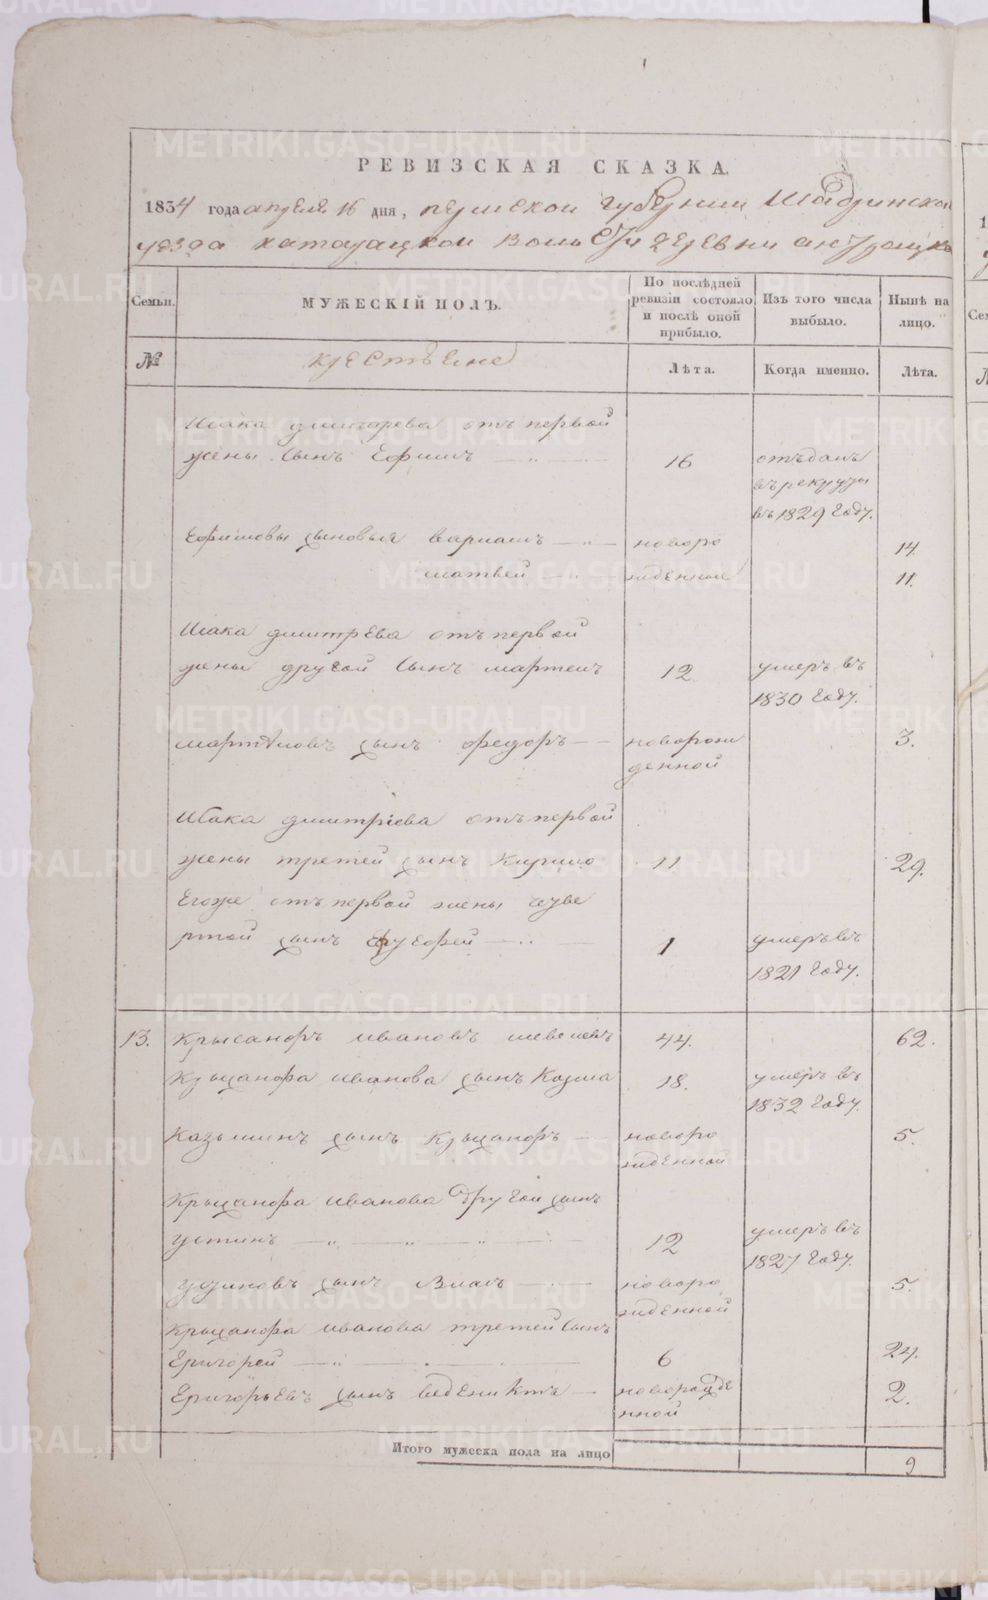 РЕВИЗСКАЯ СКАЗКА.
1834 года апреля 16 дня, пермской губернии Шадринской
уезда катайацкой волости деревни
Семьи.
МУЖЕСКІЙ ПОЛЪ.
По послѣдней ревизіи состояло и послѣ оной прибыло.
Изъ того числа выбыло.
Нынѣ на лицо.
№
крестьяне
Лѣта.
Когда именно.
Лѣта.
Исака дмитрева отъ первой
жены сынъ Ефимъ 16 отъданъ
въ рекруты
въ 1829 году.
Ефимовы сыновья варламъ новоро 14.
матвей жденные 11.
Исака дмитрева отъ первой
жены другой сынъ мартемъ 12 умеръ въ
1830 году.
сынъ федоръ новорож 3.
денной
Исака дмитріева отъ первой
жены третей сынъ Кирило 11 29.
Егоже отъ первой жены четве
ртой сынъ 1 умеръ въ
1821 году.
13. Крысанфъ ивановъ 44. 62.
Крысанфа иванова сынъ Козма 18. умеръ въ
1832 году.
Казьминъ сынъ Крысанфъ новоро 5.
жденной
Крысанфа иванова другой сынъ
устинъ 12 умеръ въ
1827 году.
устиновъ сынъ Власъ новоро 5.
жденной
Крысанфа иванова третей сынъ
Григорей 6 24.
Григорьевъ сынъ веденикть новорожде 2.
нной
Итого мужеска пола на лицо 9
METRIKI.GASO-URAL.RU